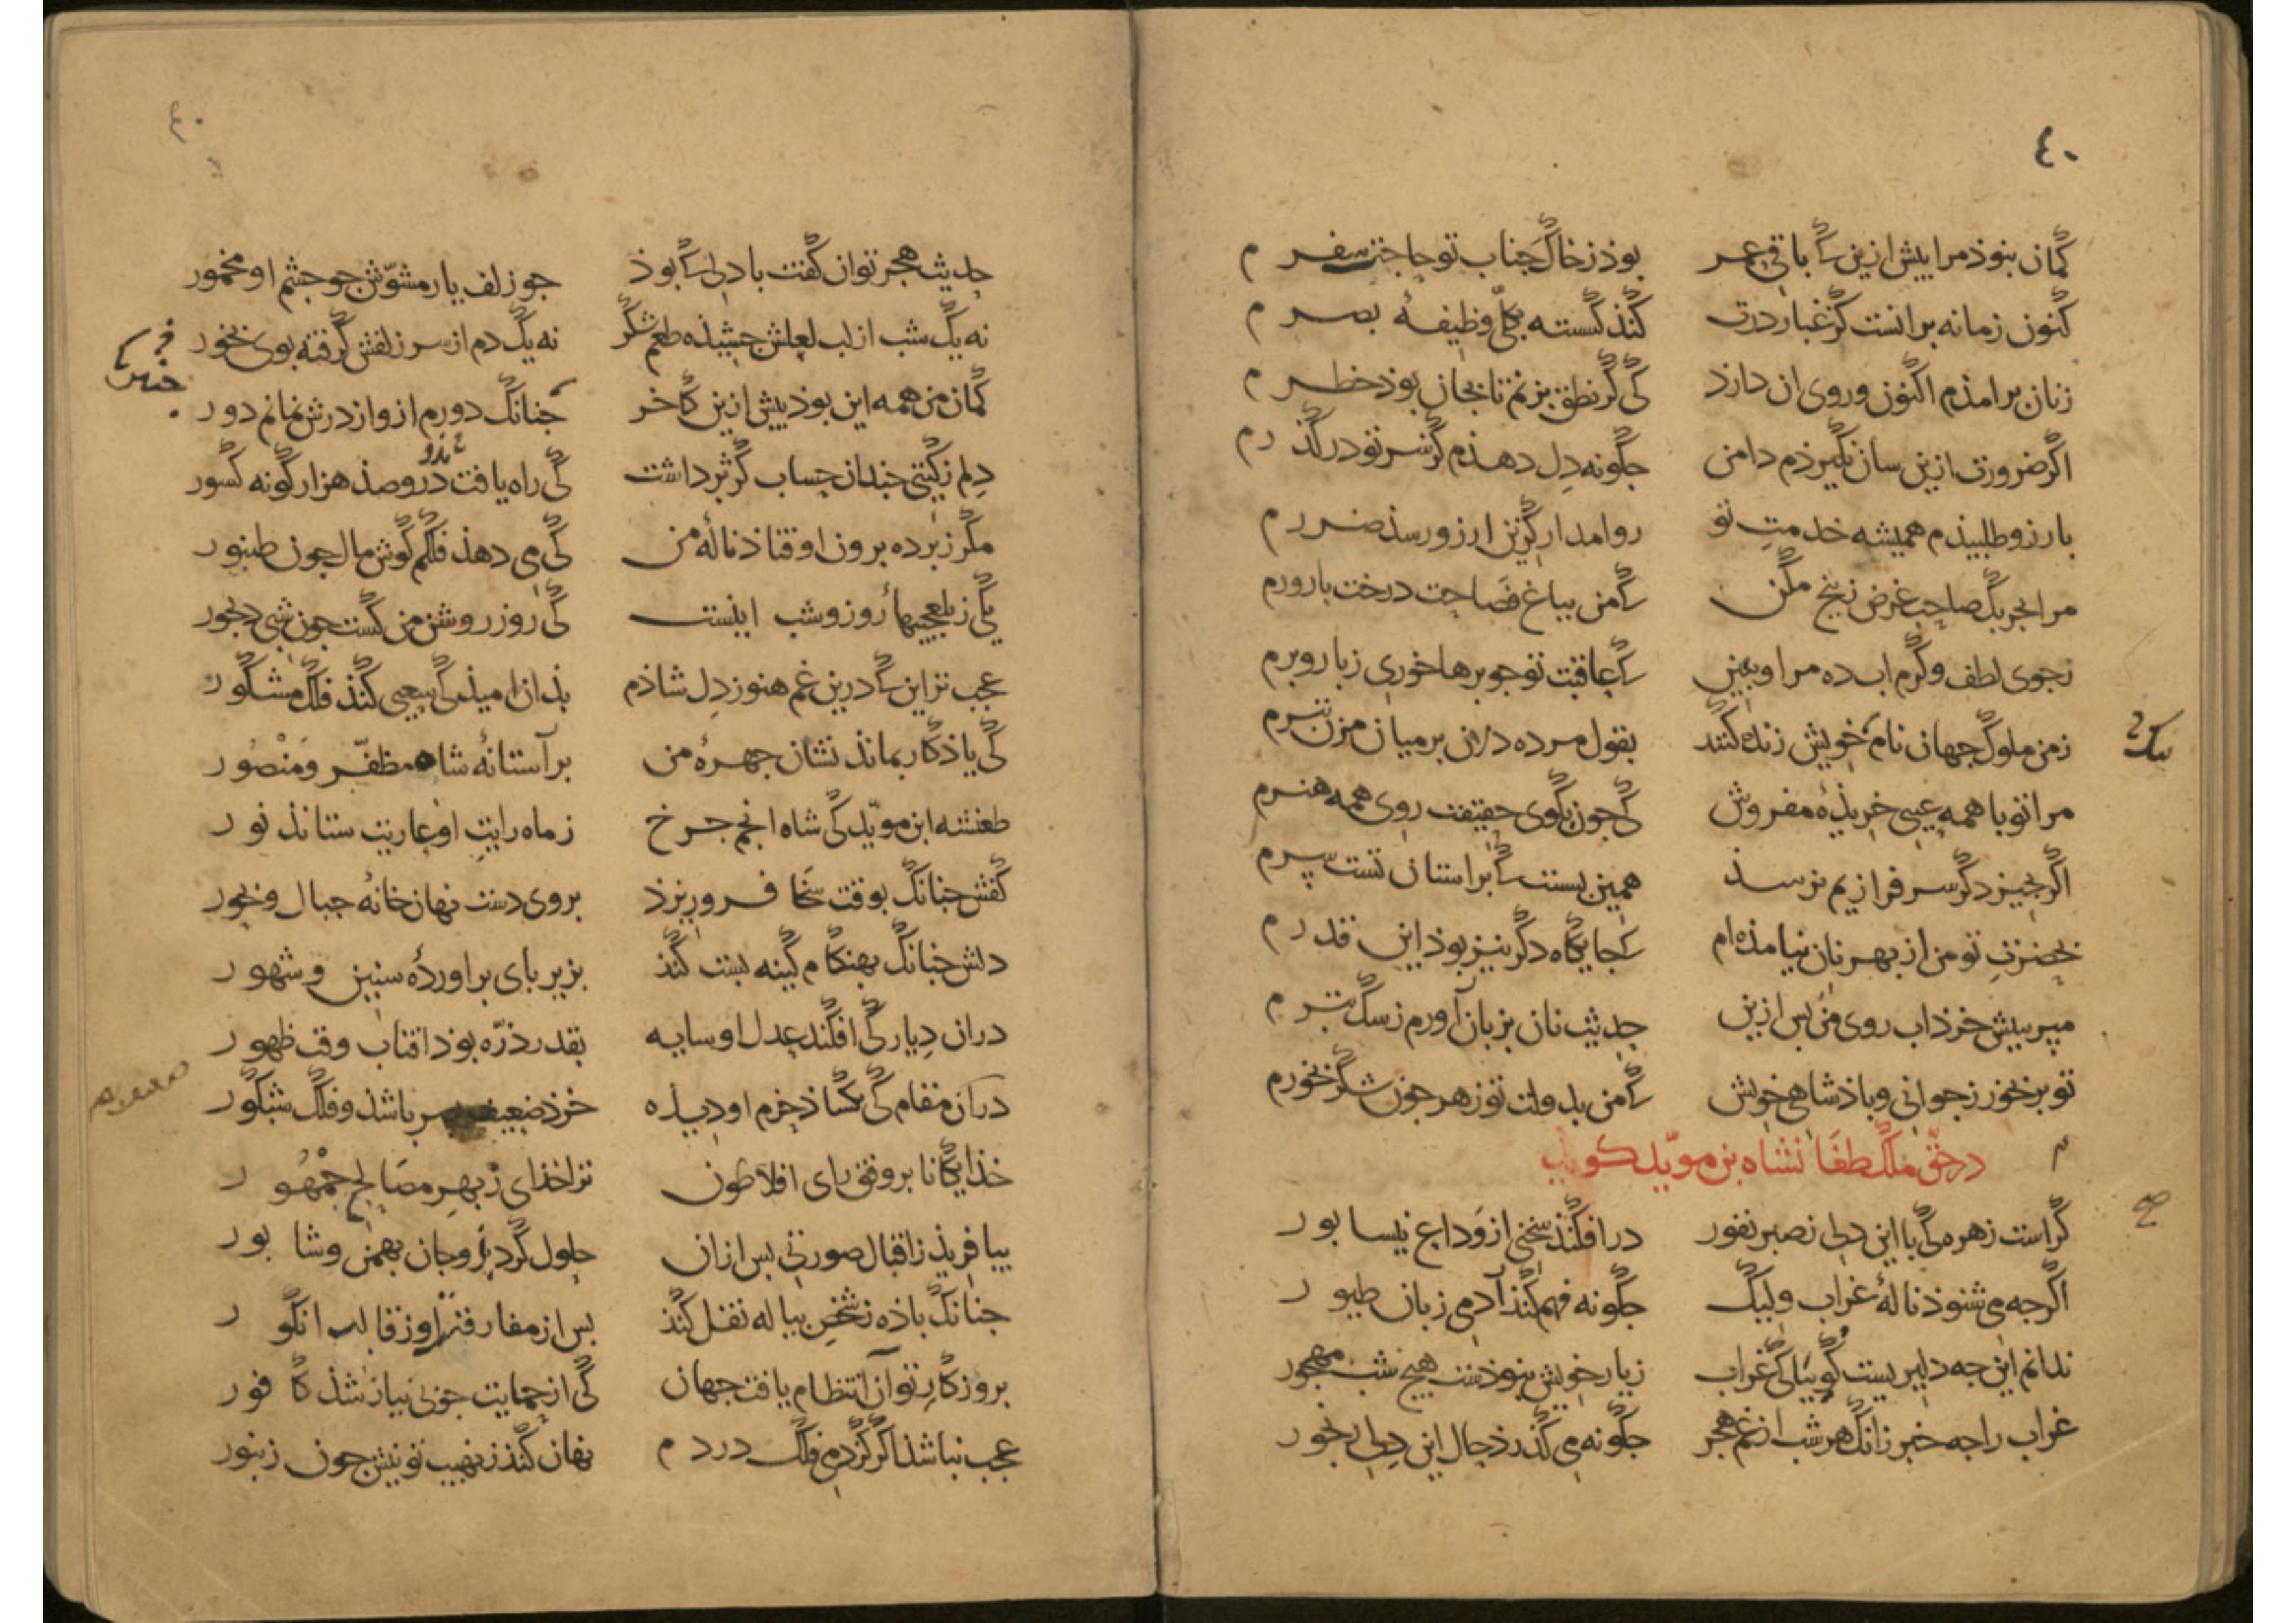 ٤٠
کمان نبوذ مرا بیش ازین کی باقی عمر بوذ ز خاک جناب تو حاجت سفرم
کنون زمانه برانست کز غبار درت کنذ کسسته بکلّی وظیفهٔ بصرم
زنان برامذم اکنون و روی ان دارذ کی کر نطق بزنم تا بجان بوذ خطرم
اکر ضرورت ازین سان نکیرذم دامن جکونه دل دهذم کز سر تو درکذرم
بارزو طلبیذم همیشه خدمت تو روا مدار کزین ارزو رسذ ضررم
مرا بجربک صاحب غرض ز بیخ مکن کی من بباغ فصاحت درخت بارورم
ز جوی لطف و کرم اب ده مرا و ببین کی عاقبت تو جو برها خوری ز بار و برم
ز من ملوک جهان نام خویش زنده کنند بقول مرده دلان بر میان مزن تبرم
سک
مرا تو با همه عیبی خریذهٔ مفروش کی جون بکوی حقیقت روی همه هنرم
اکر بجیز دکر سرفرازیم نرسذ همین بسست کی بر استان تست سرم
بحضرت تو من از بهر نان نیامذه‌ام کی جایکاه دکر نیز بوذ این قدرم
مبر ببیش خرذ اب روی من بس ازین حدیث نان بزبان آورم ز سک بترم
تو بر بخور ز جوانی و باذشاهی خویش کی من بدولت تو زهر جون شکر بخورم
در حقّ ملک طغانشاه بن مویّد کوید
کراست زهره کی با این دل ز صبر نفور در افکنذ سخنی از وداع نیسابور
اکرجه می شنوذ نالهٔ غراب ولیک جکونه فهم کنذ آدمی زبان طیور
ندانم این جه دلیریست کوییا کی غراب ز یار خویش نبوذست هیج شب مهجور
غراب را جه خبر زانک هر شب از غم هجر جکونه می کذرذ حال این دل رنجور
حدیث هجر توان کفت با دلی کی بوذ جو زلف یار مشوّش جو جشم او مخمور
نه یک شب از لب لعلش جشیذه طعم شکر نه یک دم از سر زلفش کرفته بوی بخور
کمان من همه این بوذ بیش ازین کاخر جنانک دورم ازو از درش نمانم دور
دلم ز کیتی جندان حساب کژ برداشت کی راه یافت درو صذ هزار کونه کسور
مکر ز برده برون اوفتاذ نالهٔ من کی می دهذ فلکم کوش مال جون طنبور
یکی ز بلعجبیهاء روز و شب اینست کی روز روشن من کشت جون شب دیجور
عجب تر این کی درین غم هنوز دل شاذم بذان امیذ کی سعیی کنذ فلک مشکور
کی یاذکار بمانذ نشان جهرهٔ من بر آستانهٔ شاه مظفّر و منصور
طغنشه ابن مویّد کی شاه انجم جرخ ز ماه رایت او عاریت ستانذ نور
کفش جنانک بوقت سخا فروریزذ بروی دست نهان خانهٔ جبال و بحور
دلش جنانک بهنکام کینه بست کنذ بزیر بای براوردهٔ سنین و شهور
دران دیار کی افکند عدل او سایه بقدر ذرّه بوذ افتاب وقت ظهور
دران مقام کی بکشاذ حزم او دیذه خرذ ضعیف بصر باشذ و فلک شبکور
خذایکانا بر وفق رای افلاطون ترا خذای ز بهر مصالح جمهور
بیافریذ ز اقبال صورتی بس ازان حلول کرد برو جان بهمن و شابور
جنانک باذه ز شخص بیاله نقل کنذ بس از مفارقت او ز قالب انکور
بروزکار تو آن انتظام یافت جهان کی از حمایت جو بی نیاز شذ کافور
عجب نباشذ اکر کزدم فلک در دم نهان کنذ ز نهیب تو نیش جون زنبور